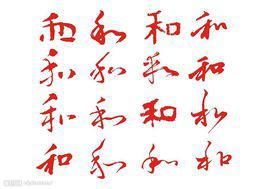 和 和 和 和
和 和 和 和
和 和 和 和
和 和 和 和